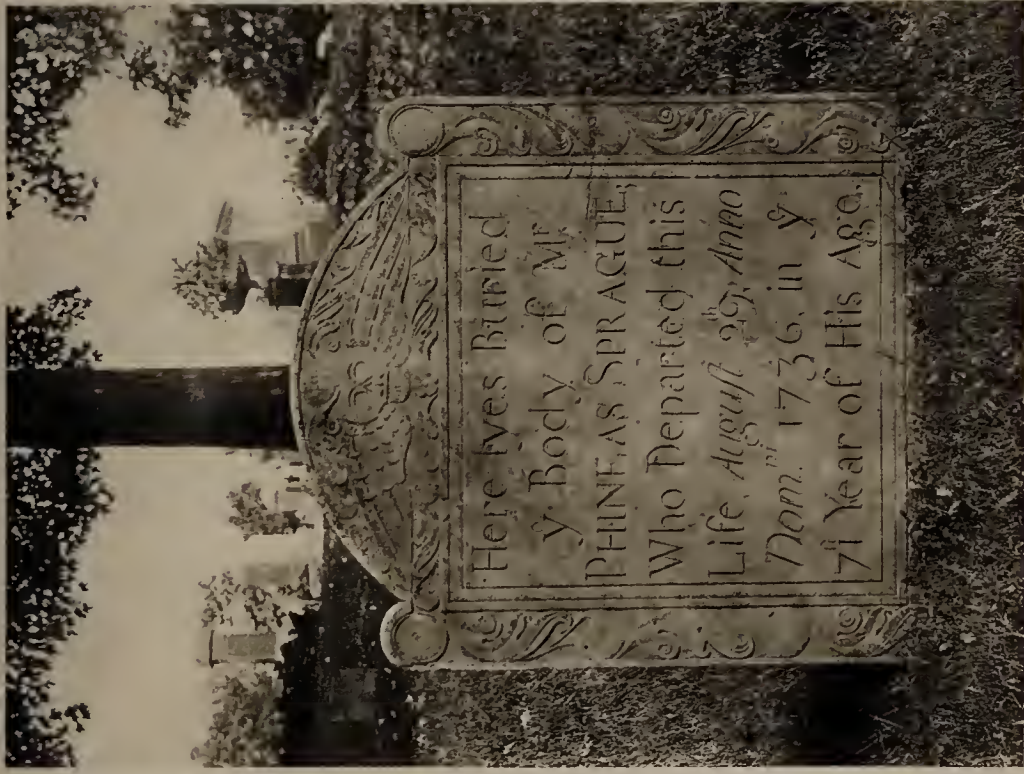 Here lyes Buried
yͤ Body of Mʳ
PHINEAS SPRAGUE,
Who Departed this
Life, August 29ᵗʰ, Anno
Domⁿⁱ 1736, in yͤ
71ˢᵗ Year of His Age.